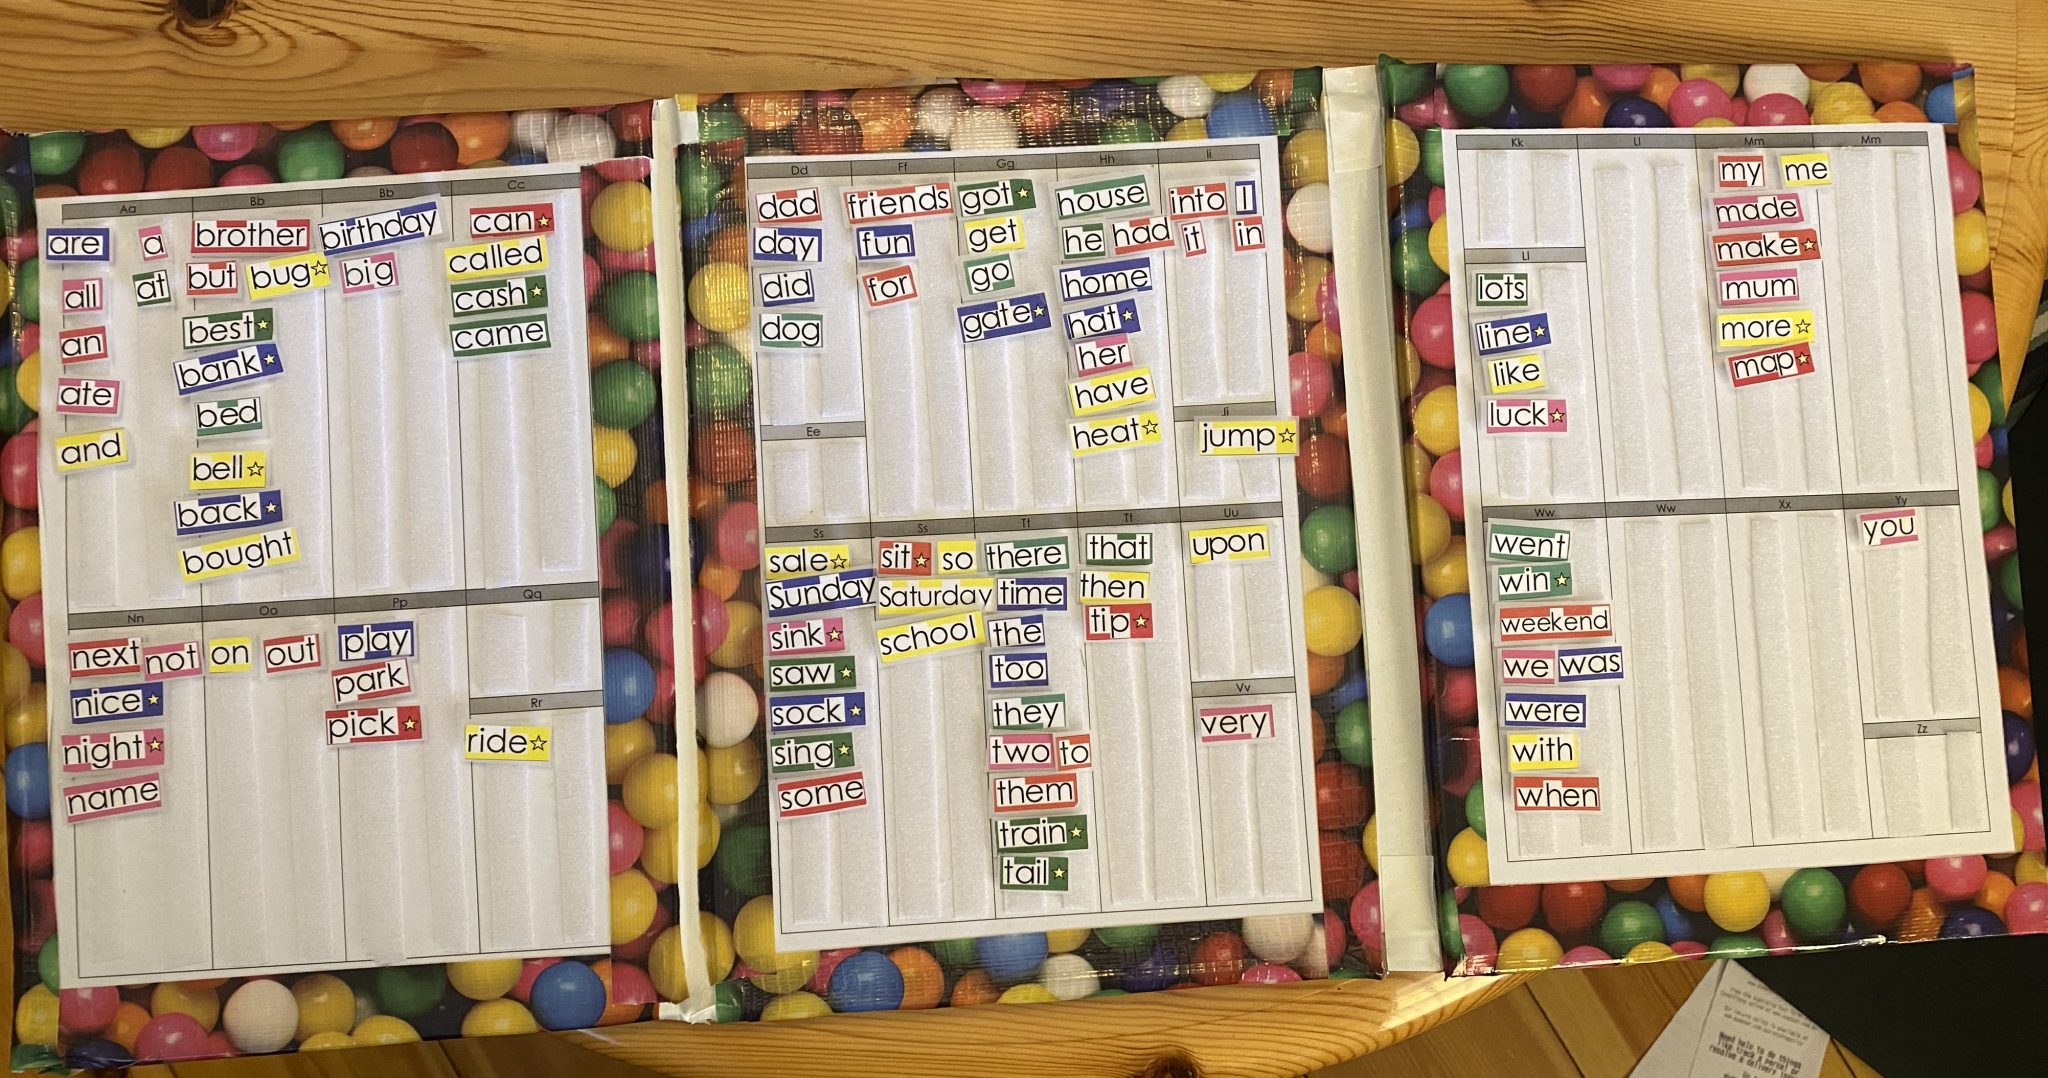 Aa Bb Bb Cc
are a brother birthday can
all at but bug big called
an best cash
ate bank came
and bed
bell
back
bought
Nn Oo Pp Qq
next not on out play
nice park
night pick
name
Rr
ride
Dd Ff Gg Hh Ii
dad friends got house into I
day fun get he had it in
did for go home
dog gate hat
her
have
heat
Ee
Jj
jump
Ss Ss Tt Tt Uu
sale sit so there that upon
Sunday Saturday time then
sink school the tip
saw too
sock they
sing two to
some them
train
tail
Vv
very
Kk Ll Mm Mm
my me
made
make
mum
more
map
Ll
lots
line
like
luck
Ww Ww Xx Yy
went you
win
weekend
we was
were
with
when
Zz
Need help to do things
like track a parcel or